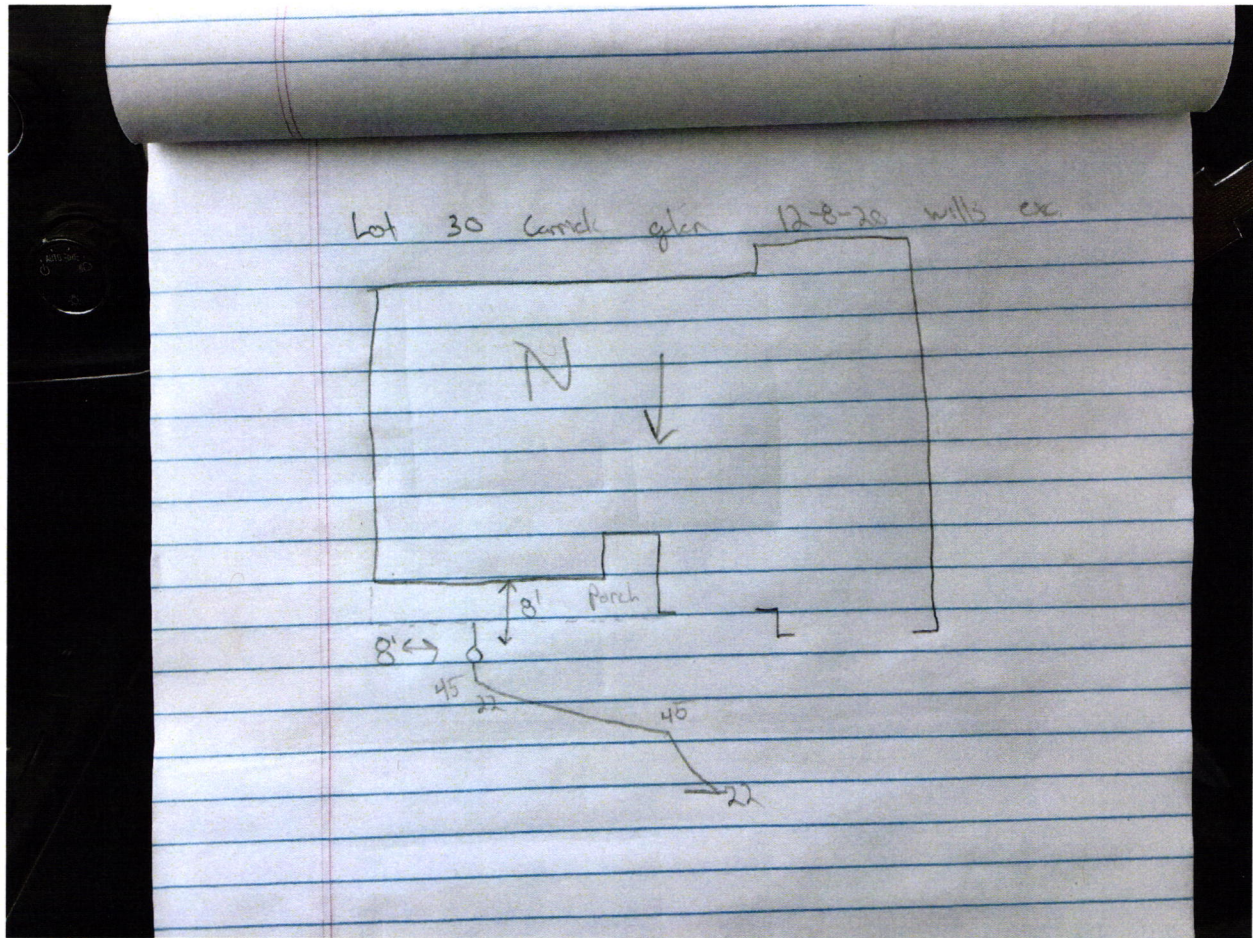 Lot 30 Carrick glen 12-8-20 wills exc.
N
8' Porch
8'
45
22 45
22